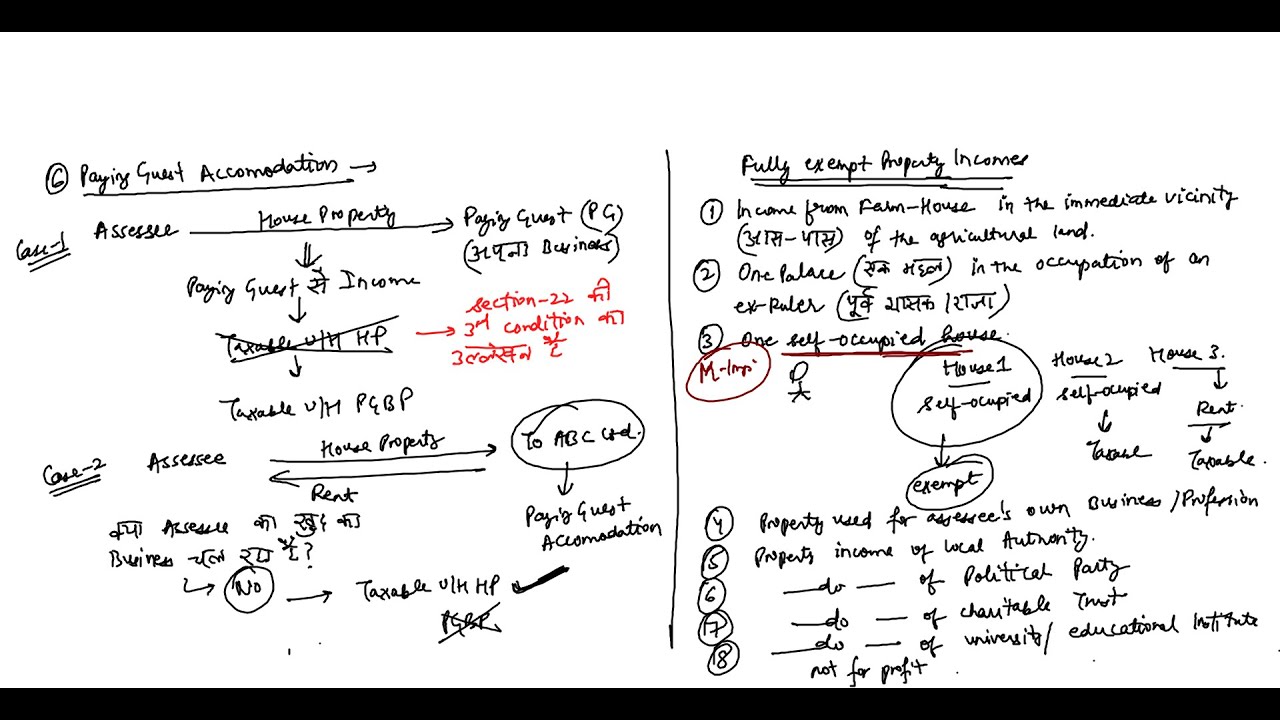 ⑥ Paying Guest Accomodation →
Case-1 Assessee House Property → Paying Guest (PG)
(अपना Business)
Paying Guest से Income
Taxable U/H HP → Section-22 की
3rd condition का
उल्लंघन है
Taxable U/H PGBP
Case-2 Assessee House Property → To ABC Ltd.
Rent
Paying Guest
Accomodation
क्या Assessee का खुद का
Business चल रहा है?
↳ No → Taxable U/H HP ✓
PGBP
Fully exempt Property Incomes
① Income from Farm-House in the immediate vicinity
(आस-पास) of the agricultural land.
② One Palace (एक महल) in the occupation of an
ex-Ruler (पूर्व शासक/राजा)
③ One self-occupied house.
M-Imp
House 1 House 2 House 3.
Self-ocupied self-ocupied Rent.
exempt Taxable Taxable.
④ Property used for assessee's own Business/Profession
⑤ Property income of local Authority.
⑥ —do— of Political Party
⑰ —do— of charitable Trust
⑱ —do— of university/educational Institute
not for profit